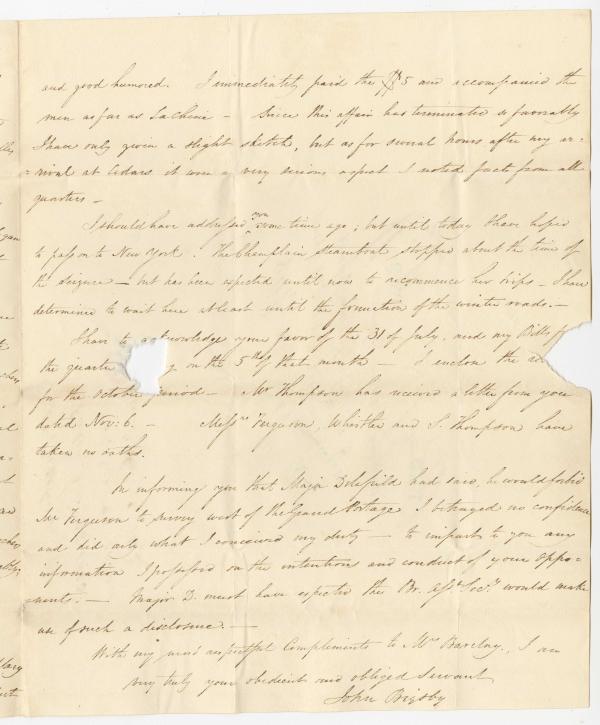 and good humored. I immediately paid the $5 and accompanied the
men as far as La Chine – Since this affair has terminated so favorably
I have only given a slight sketch, but as for several hours after my ar-
-rival at Cedars it wore a very serious aspect I noted facts from all
quarters –
I should have addressed you some time ago; but until today I have hoped
to pass on to New York. The Champlain Steamboat stopped about the time of
the seizure – but has been expected until now to recommence her trips – I have
determined to wait here at least until the formation of the winter roads. –
I have to acknowledge your favor of the 31 of July, and my Bills f
the quarte on the 5th of that month – I enclose the
for the October period – Mr Thompson has received a letter from you
dated Nov: 6. – Messrs Ferguson, Whistler and S. Thompson have
taken no oaths.
In informing you that Major Delafield had said, he would forbid
Mr Ferguson to survey west of the Grand Portage I betrayed no confidence
and did only what I conceived my duty – to impart to you any
information I possessed on the intentions and conduct of your oppo-
nents. – Major D. must have expected the Br. Asst Secy would make
use of such a disclosure. –
With my most respectful Compliments to Mrs Barclay, I am
very truly your obedient and obliged Servant
John Bigsby